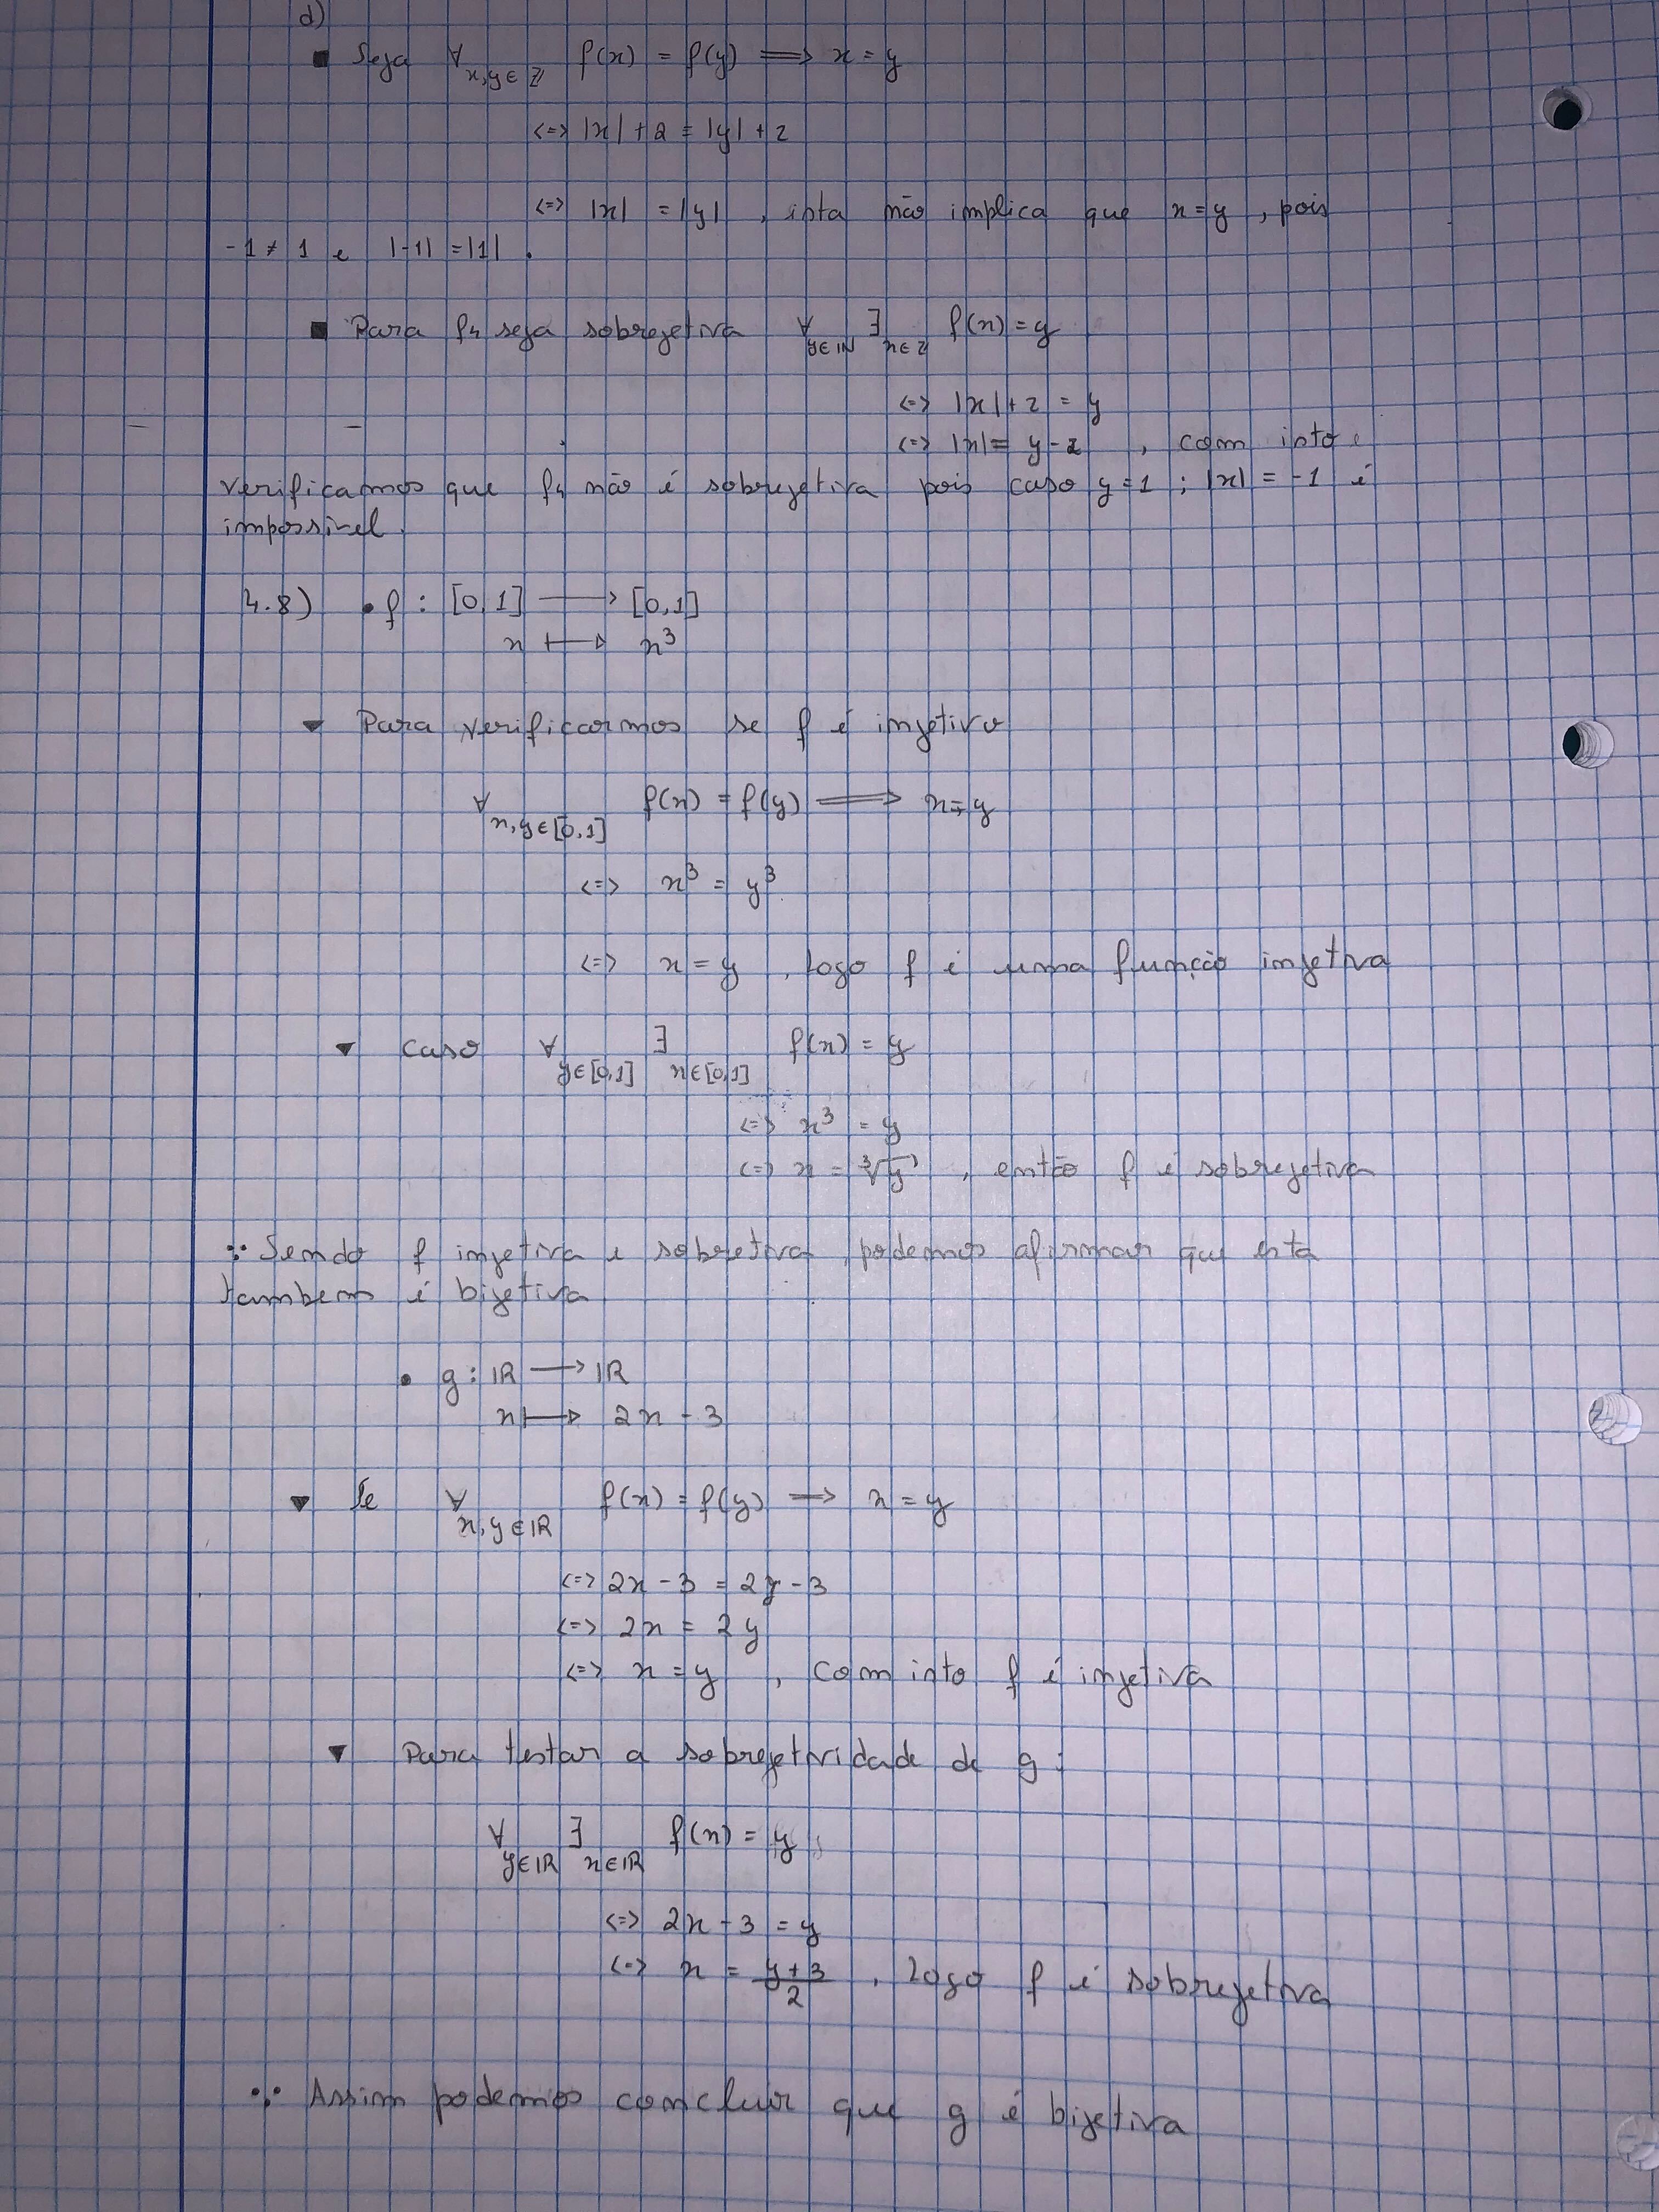 d)
▪ Seja ∀x,y∈ℤ f(x) = f(y) ⟹ x = y
<=> |x| + 2 = |y| + 2
<=> |x| = |y| , ista não implica que x=y , pois
-1 ≠ 1 e |-1| = |1| .
▪ Para f4 seja sobrejetiva ∀y∈ℕ ∃x∈ℤ f(x) = y
<=> |x| + 2 = y
<=> |x| = y - 2 , com isto
verificamos que f4 não é sobrejetiva pois caso y=1 ; |x| = -1 é
impossivel.
4.8) • f : [0,1] ⟶ [0,1]
x ⟼ x³
▾ Para verificarmos se f é injetiva
∀x,y∈[0,1] f(x) = f(y) ⟹ x = y
<=> x³ = y³
<=> x = y , logo f é uma função injetiva
▾ Caso ∀y∈[0,1] ∃x∈[0,1] f(x) = y
<=> x³ = y
<=> x = ∛y , então f é sobrejetiva
∵ Sendo f injetiva e sobretiva, podemos afirmar que esta
tambem é bijetiva
• g : ℝ ⟶ ℝ
x ⟼ 2x - 3
▾ Se ∀x,y∈ℝ f(x) = f(y) ⟹ x = y
<=> 2x - 3 = 2y - 3
<=> 2x = 2y
<=> x = y , Com isto f é injetiva
▾ Para testar a sobrejetividade de g :
∀y∈ℝ ∃x∈ℝ f(x) = y
<=> 2x - 3 = y
<=> x = (y+3)/2 , logo f é sobrejetiva
∵ Assim podemos concluir que g é bijetiva